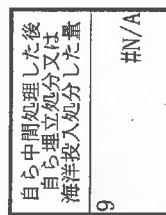 自ら中間処理した後
自ら埋立処分又は
海洋投入処分した量
9
#N/A